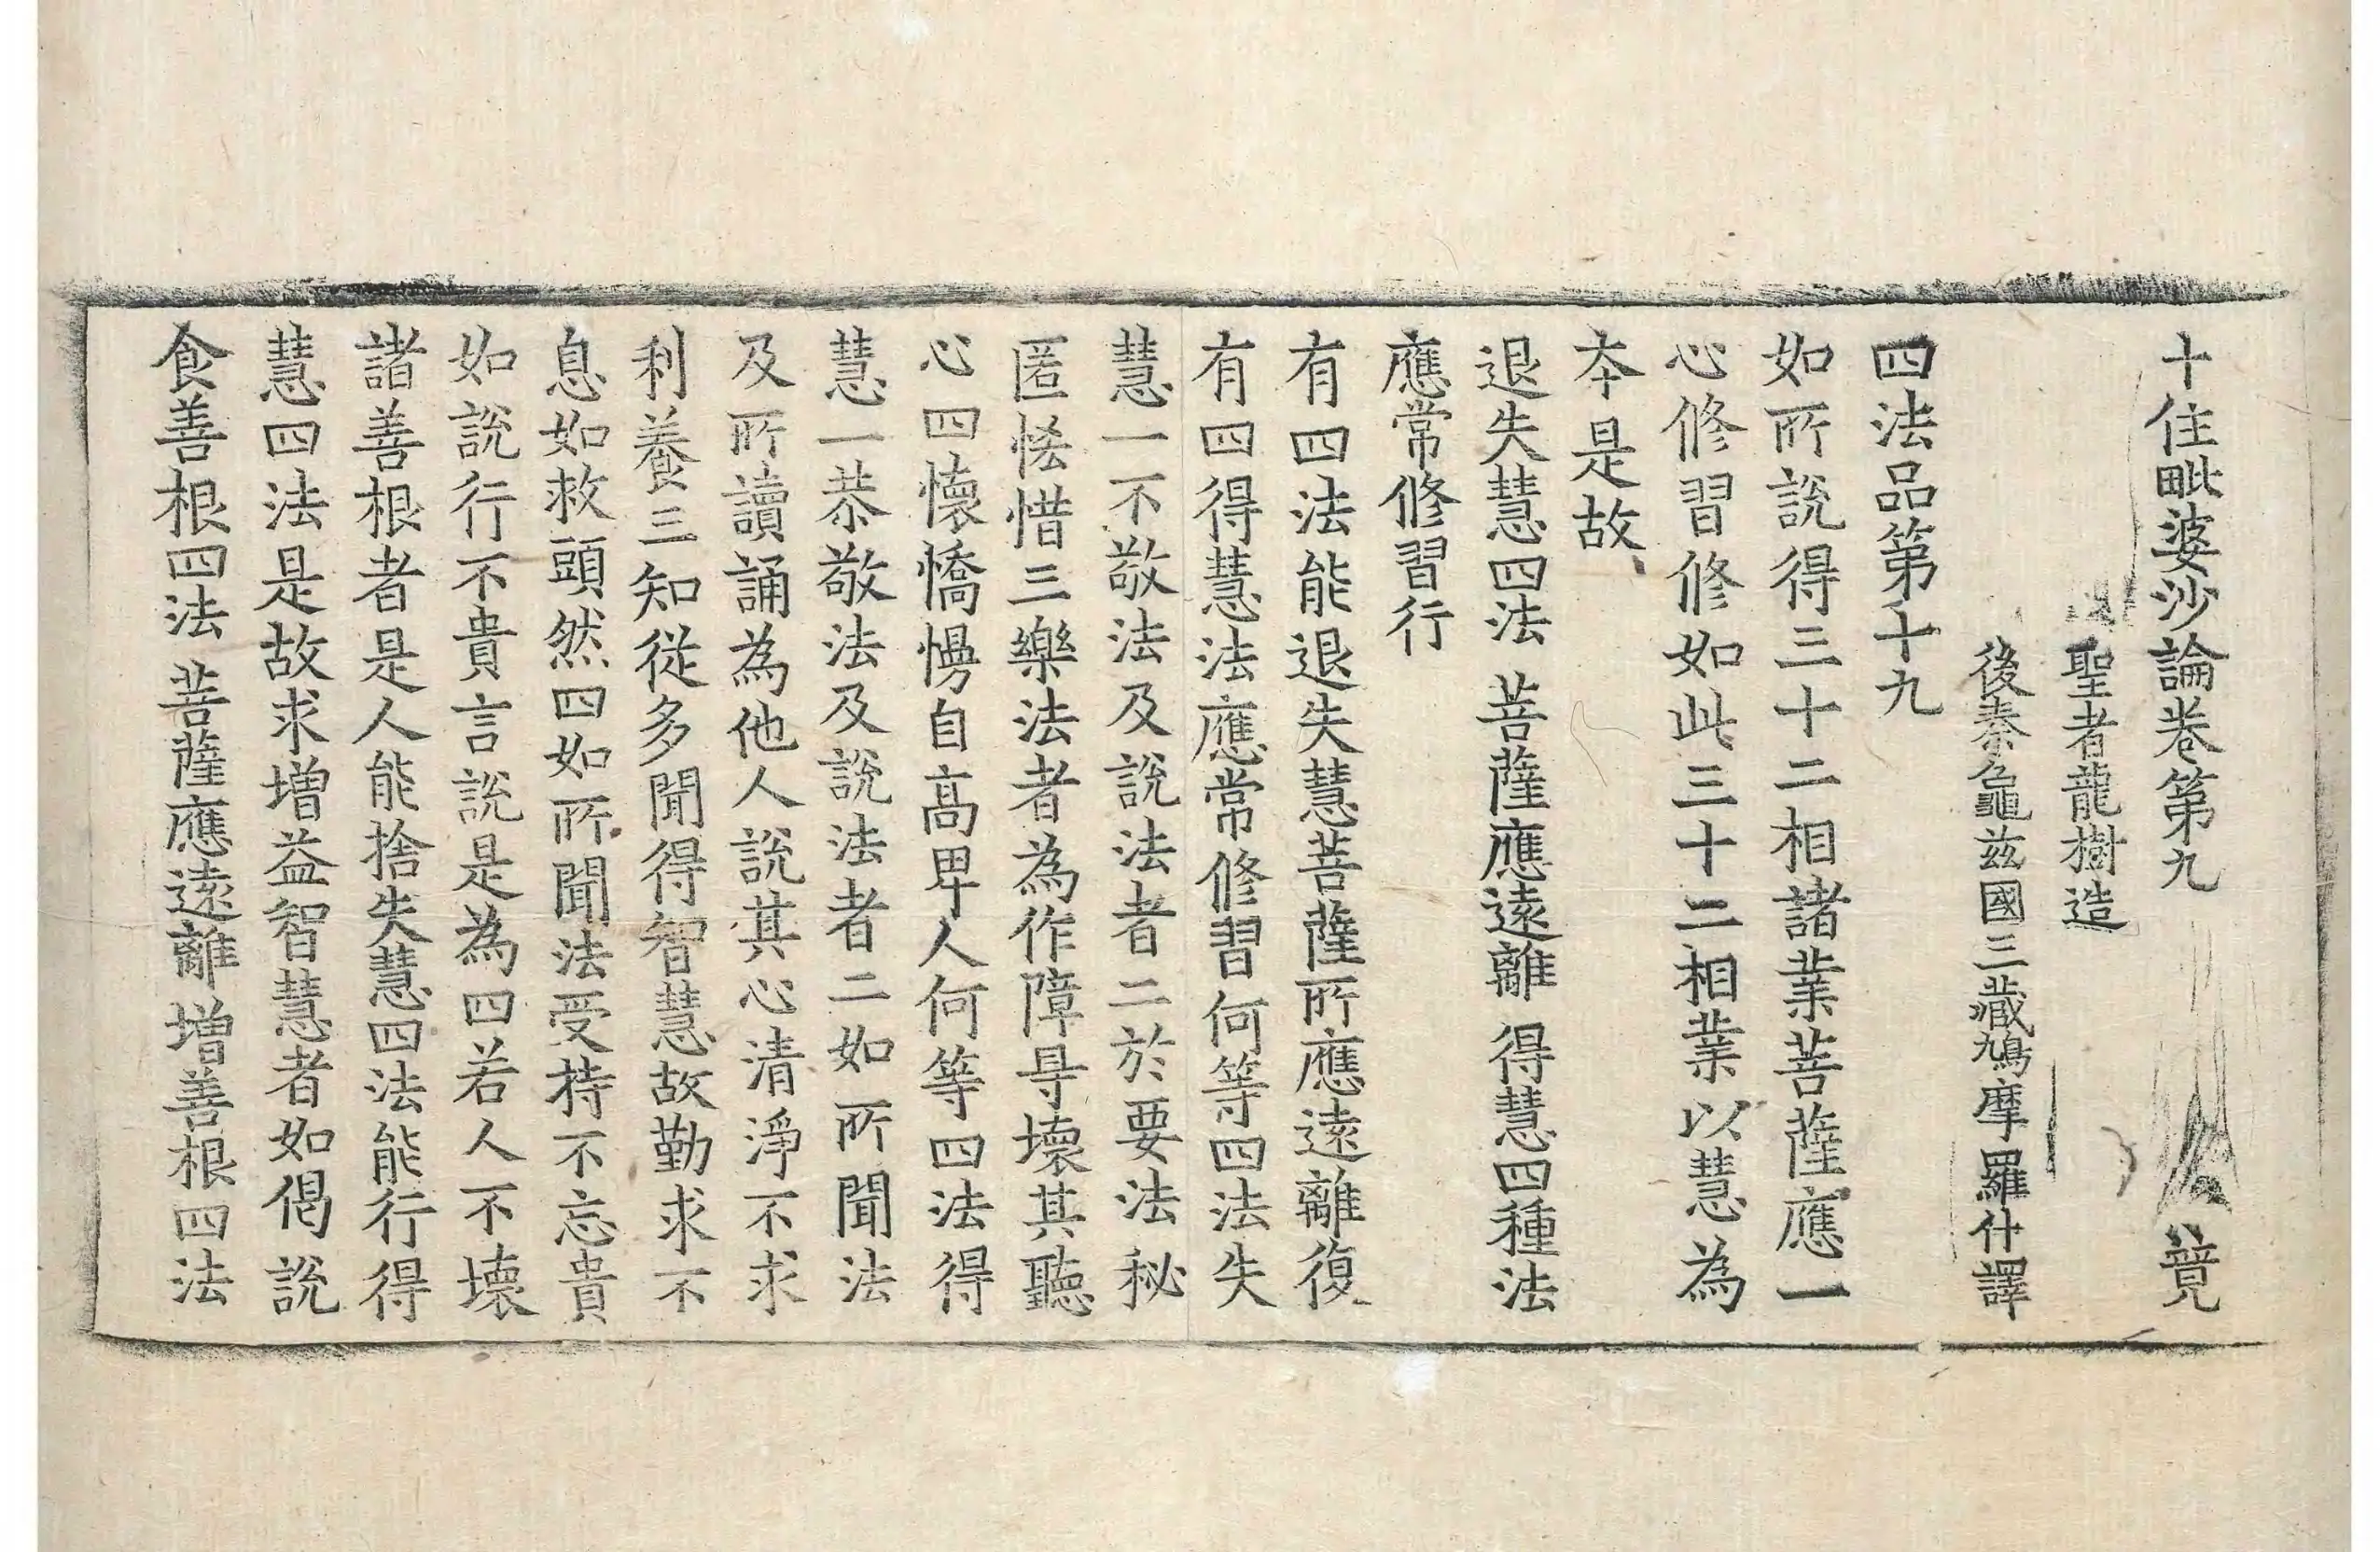 十住毗婆沙論卷第九 竟
聖者龍樹造
後秦龜茲國三藏鳩摩羅什譯
四法品第十九
如所說得三十二相諸業菩薩應一
心修習修如此三十二相業以慧為
夲是故
退失慧四法 菩薩應遠離 得慧四種法
應常修習行
有四法能退失慧菩薩所應遠離復
有四得慧法應常修習何等四法失
慧一不敬法及說法者二於要法秘
匿悋惜三樂法者為作障㝵壞其聽
心四懷憍慢自高卑人何等四法得
慧一恭敬法及說法者二如所聞法
及所讀誦為他人說其心清淨不求
利養三知從多聞得智慧故勤求不
息如救頭然四如所聞法受持不忘貴
如說行不貴言說是為四若人不壞
諸善根者是人能捨失慧四法能行得
慧四法是故求增益智慧者如偈說
食善根四法 菩薩應遠離 增善根四法